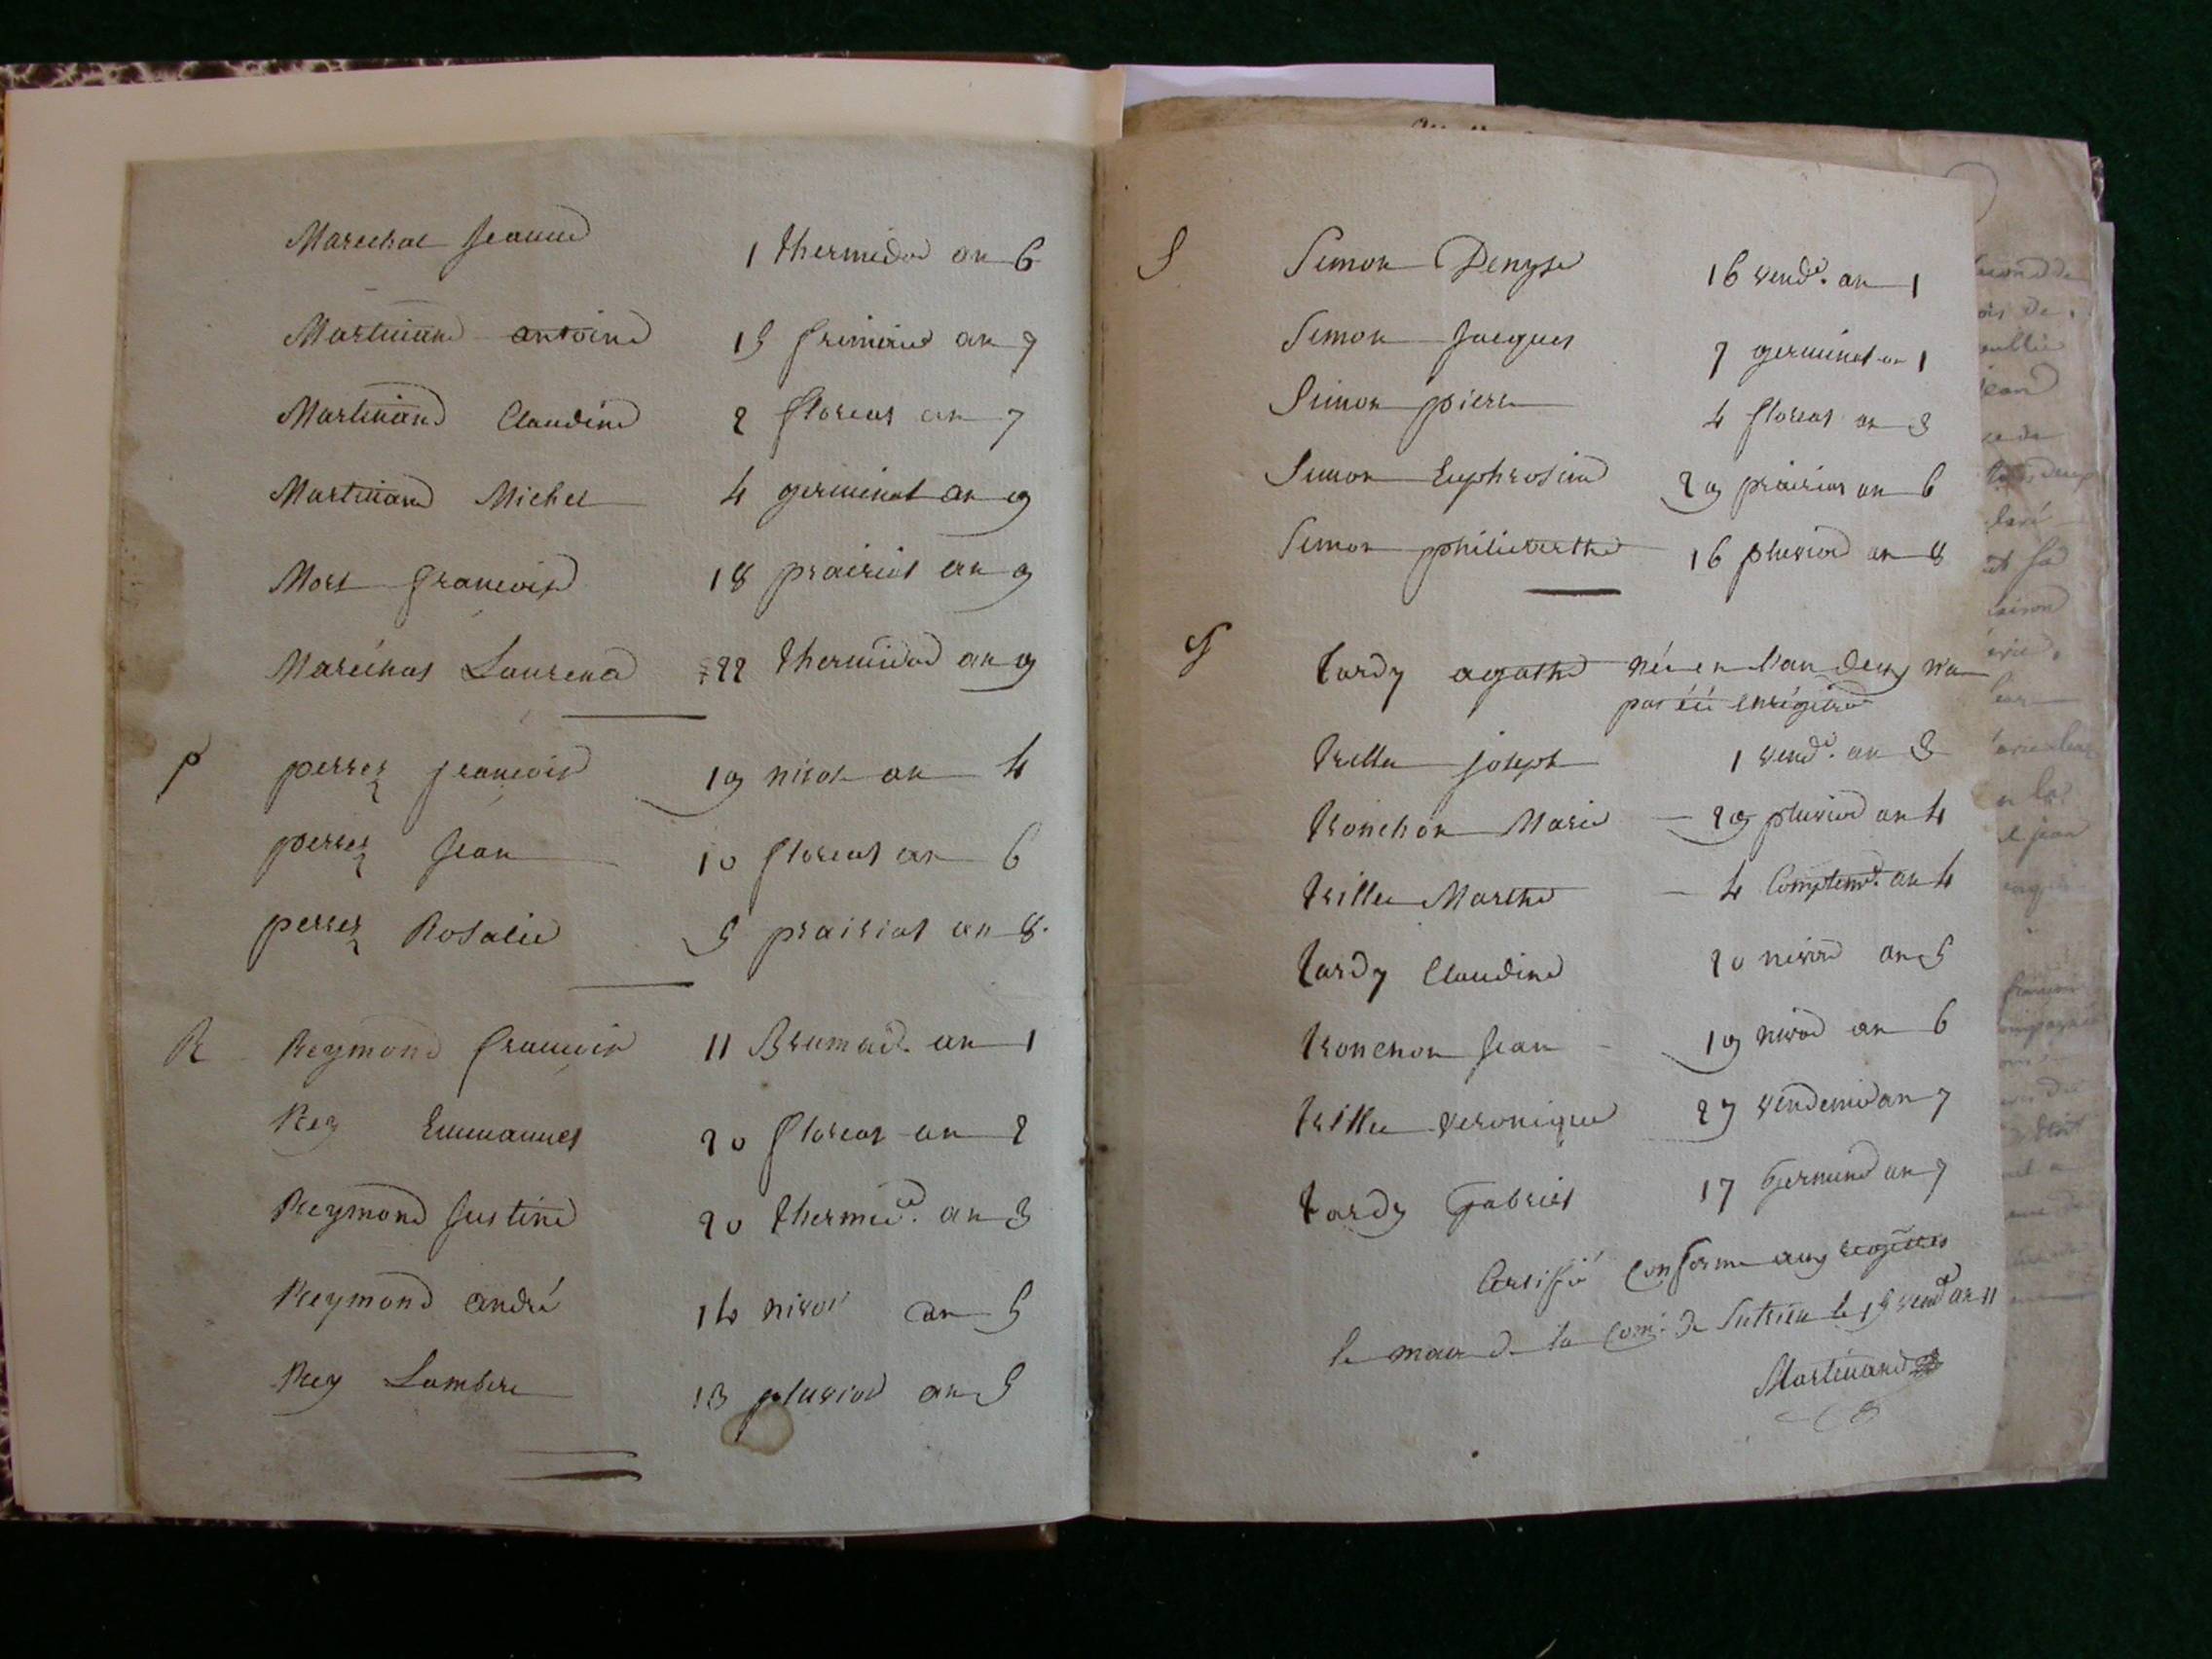 Marechal Jeanne 1 thermidor an 6
Martinand antoine 15 frimaire an 7
Martinand Claudine 2 floreal an 7
Martinand Michel 4 germinal an 9
Mort françoise 18 prairial an 9
Maréchal Laurend 22 thermidor an 9
P perrez françoise 19 nivose an 4
perrez Jean 10 floreal an 6
perrez Rosalie 5 prairial an 8.
R Reymond françois 11 Brumaire. an 1
Rey Emmanuel 20 floreal an 2
Reymond Justine 20 thermid. an 3
Reymond andré 14 nivose an 5
Rey Lambere 13 pluviose an 5
S Simon Denyse 16 vend.e an 1
Simon Jacques 7 germinal an 1
Simon pierre 4 floreal an 3
Simon Euphrosine 29 prairial an 6
Simon philiberthe 16 pluviose an 8
T tardy agathe née en l'an deux n'a
pas été enrégitrée
trillu joseph 1 vend.e an 3
tronchon Marie 29 pluviose an 4
trillu Marthe 4 Complem.re an 4
tardy Claudine 20 nivose an 5
tronchon Jean 19 nivose an 6
trillu veronique 27 vendemie an 7
tardy Gabriel 17 Germinal an 7
Certifié Conforme aux regîtres
le maire de la Com.e de Sutrieu le 15 vend.e an 11
Martinand